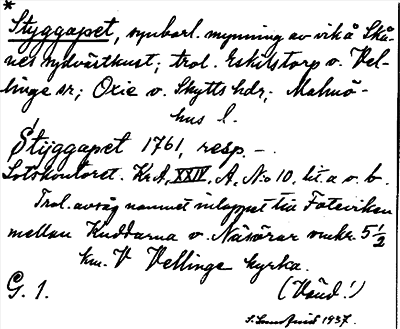 *
Styggapet, synbarl. mynning av vik å Skå-
nes sydvästkust; trol. Eskilstorp o. Vel-
linge sr; Oxie o. Skytts hdr; Malmö-
hus l.
Styggapet 1761, resp. –.
Lotskontoret. Kr.A, XXIV, A, N:o 10, lit. a o. b.
Trol. avsåg namnet inloppet till Foteviken
mellan Kuddarna o. Näsörar omkr. 5 1/2
km. V Vellinge kyrka.
G. 1. (Vänd!)
1937.